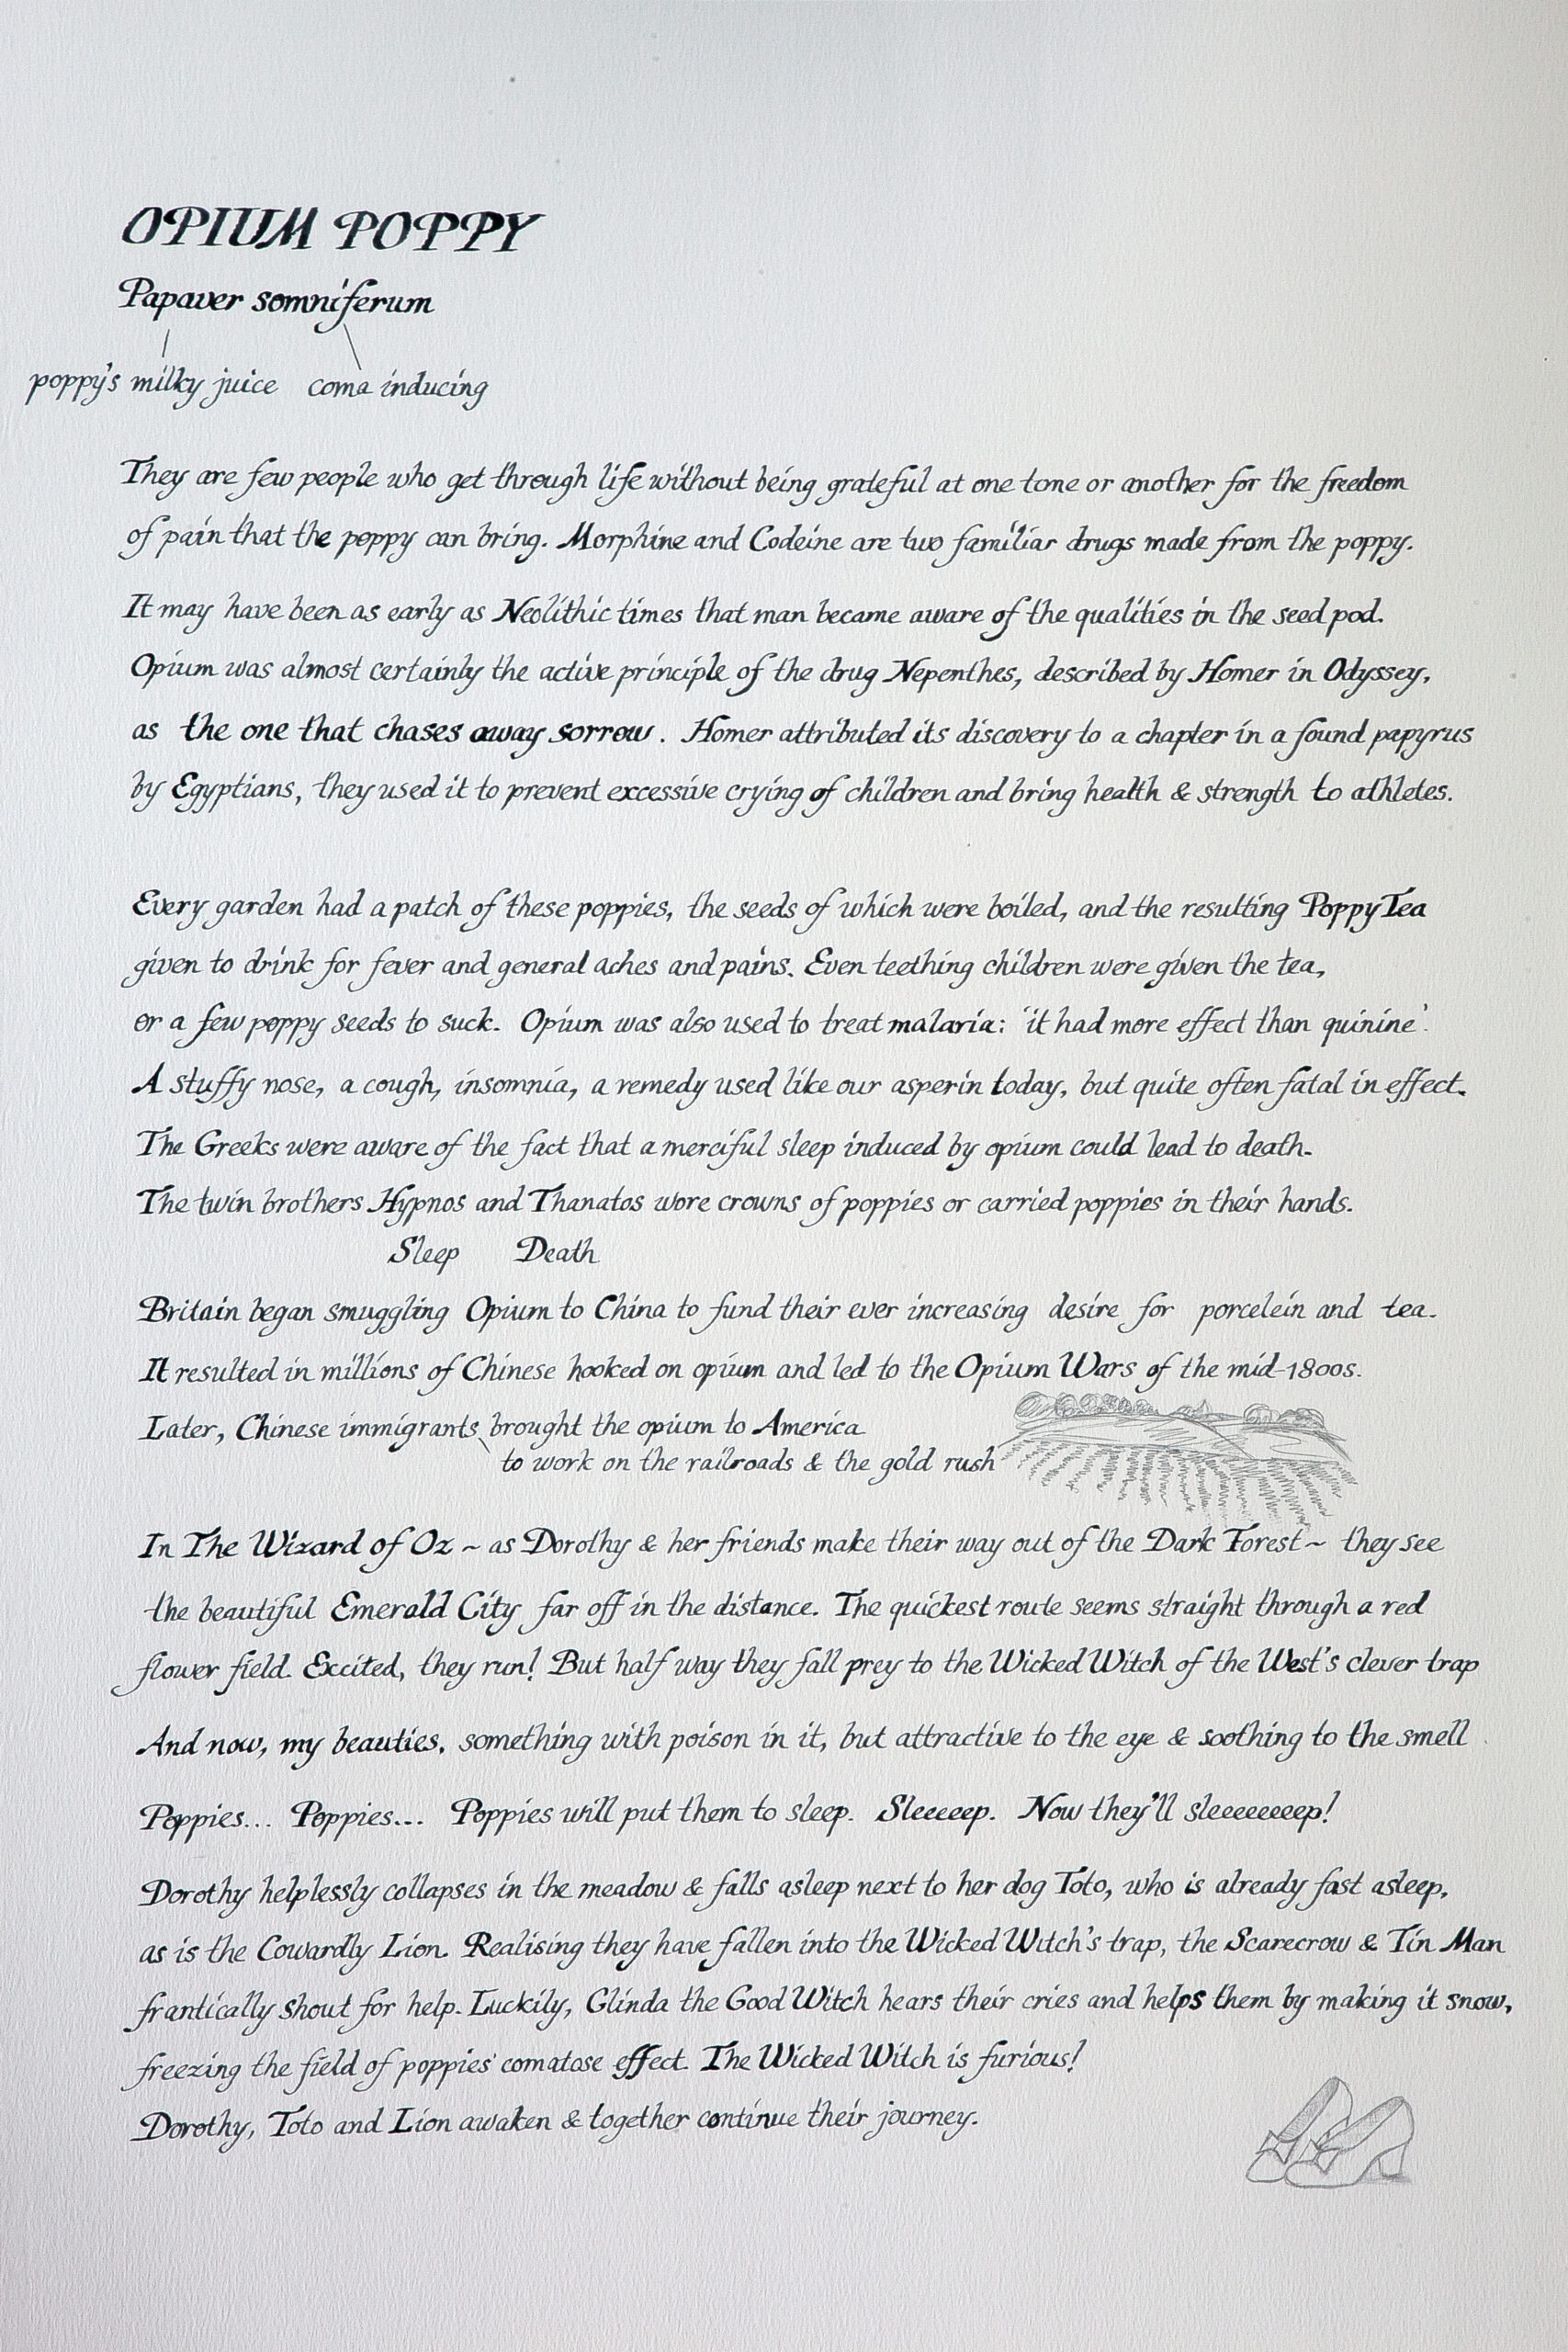 OPIUM POPPY
Papaver somniferum
poppy's milky juice coma inducing
They are few people who get through life without being grateful at one tome or another for the freedom
of pain that the poppy can bring. Morphine and Codeine are two familiar drugs made from the poppy.
It may have been as early as Neolithic times that man became aware of the qualities in the seed pod.
Opium was almost certainly the active principle of the drug Nepenthes, described by Homer in Odyssey,
as the one that chases away sorrow. Homer attributed its discovery to a chapter in a found papyrus
by Egyptians, they used it to prevent excessive crying of children and bring health & strength to athletes.
Every garden had a patch of these poppies, the seeds of which were boiled, and the resulting Poppy Tea
given to drink for fever and general aches and pains. Even teething children were given the tea,
or a few poppy seeds to suck. Opium was also used to treat malaria: 'it had more effect than quinine'.
A stuffy nose, a cough, insomnia, a remedy used like our asperin today, but quite often fatal in effect.
The Greeks were aware of the fact that a merciful sleep induced by opium could lead to death.
The twin brothers Hypnos and Thanatos wore crowns of poppies or carried poppies in their hands.
Sleep Death
Britain began smuggling Opium to China to fund their ever increasing desire for porcelein and tea.
It resulted in millions of Chinese hooked on opium and led to the Opium Wars of the mid-1800s.
Later, Chinese immigrants brought the opium to America
to work on the railroads & the gold rush
In The Wizard of Oz ~ as Dorothy & her friends make their way out of the Dark Forest ~ they see
the beautiful Emerald City far off in the distance. The quickest route seems straight through a red
flower field. Excited, they run! But half way they fall prey to the Wicked Witch of the West's clever trap
And now, my beauties, something with poison in it, but attractive to the eye & soothing to the smell
Poppies... Poppies... Poppies will put them to sleep. Sleeeeep. Now they'll sleeeeeeeep!
Dorothy helplessly collapses in the meadow & falls asleep next to her dog Toto, who is already fast asleep,
as is the Cowardly Lion. Realising they have fallen into the Wicked Witch's trap, the Scarecrow & Tin Man
frantically shout for help. Luckily, Glinda the Good Witch hears their cries and helps them by making it snow,
freezing the field of poppies' comatose effect. The Wicked Witch is furious!
Dorothy, Toto and Lion awaken & together continue their journey.